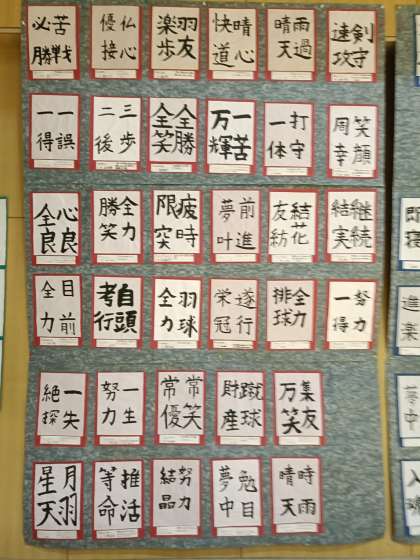 苦戦必勝
仏心優接
羽友楽歩
晴心快道
雨過晴天
剣守速攻
一誤一得
三歩二後
全勝全笑
一苦万輝
打守一体
笑顔周幸
心良全良
全力勝笑
疲時限突
前進夢叶
結花友紡
継続結実
目前全力
自頭考行
羽球全力
遂行栄冠
全力排球
努力一得
一失絶探
一生努力
常笑常優
蹴球財産
集友万笑
月羽星天
推活等命
努力結晶
勉目夢中
時雨晴天
即寝
進楽